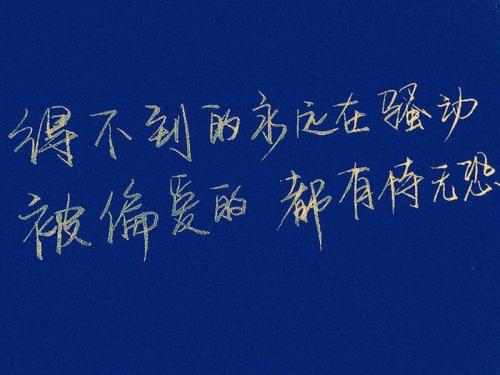 得不到的永远在骚动
被偏爱的 都有恃无恐